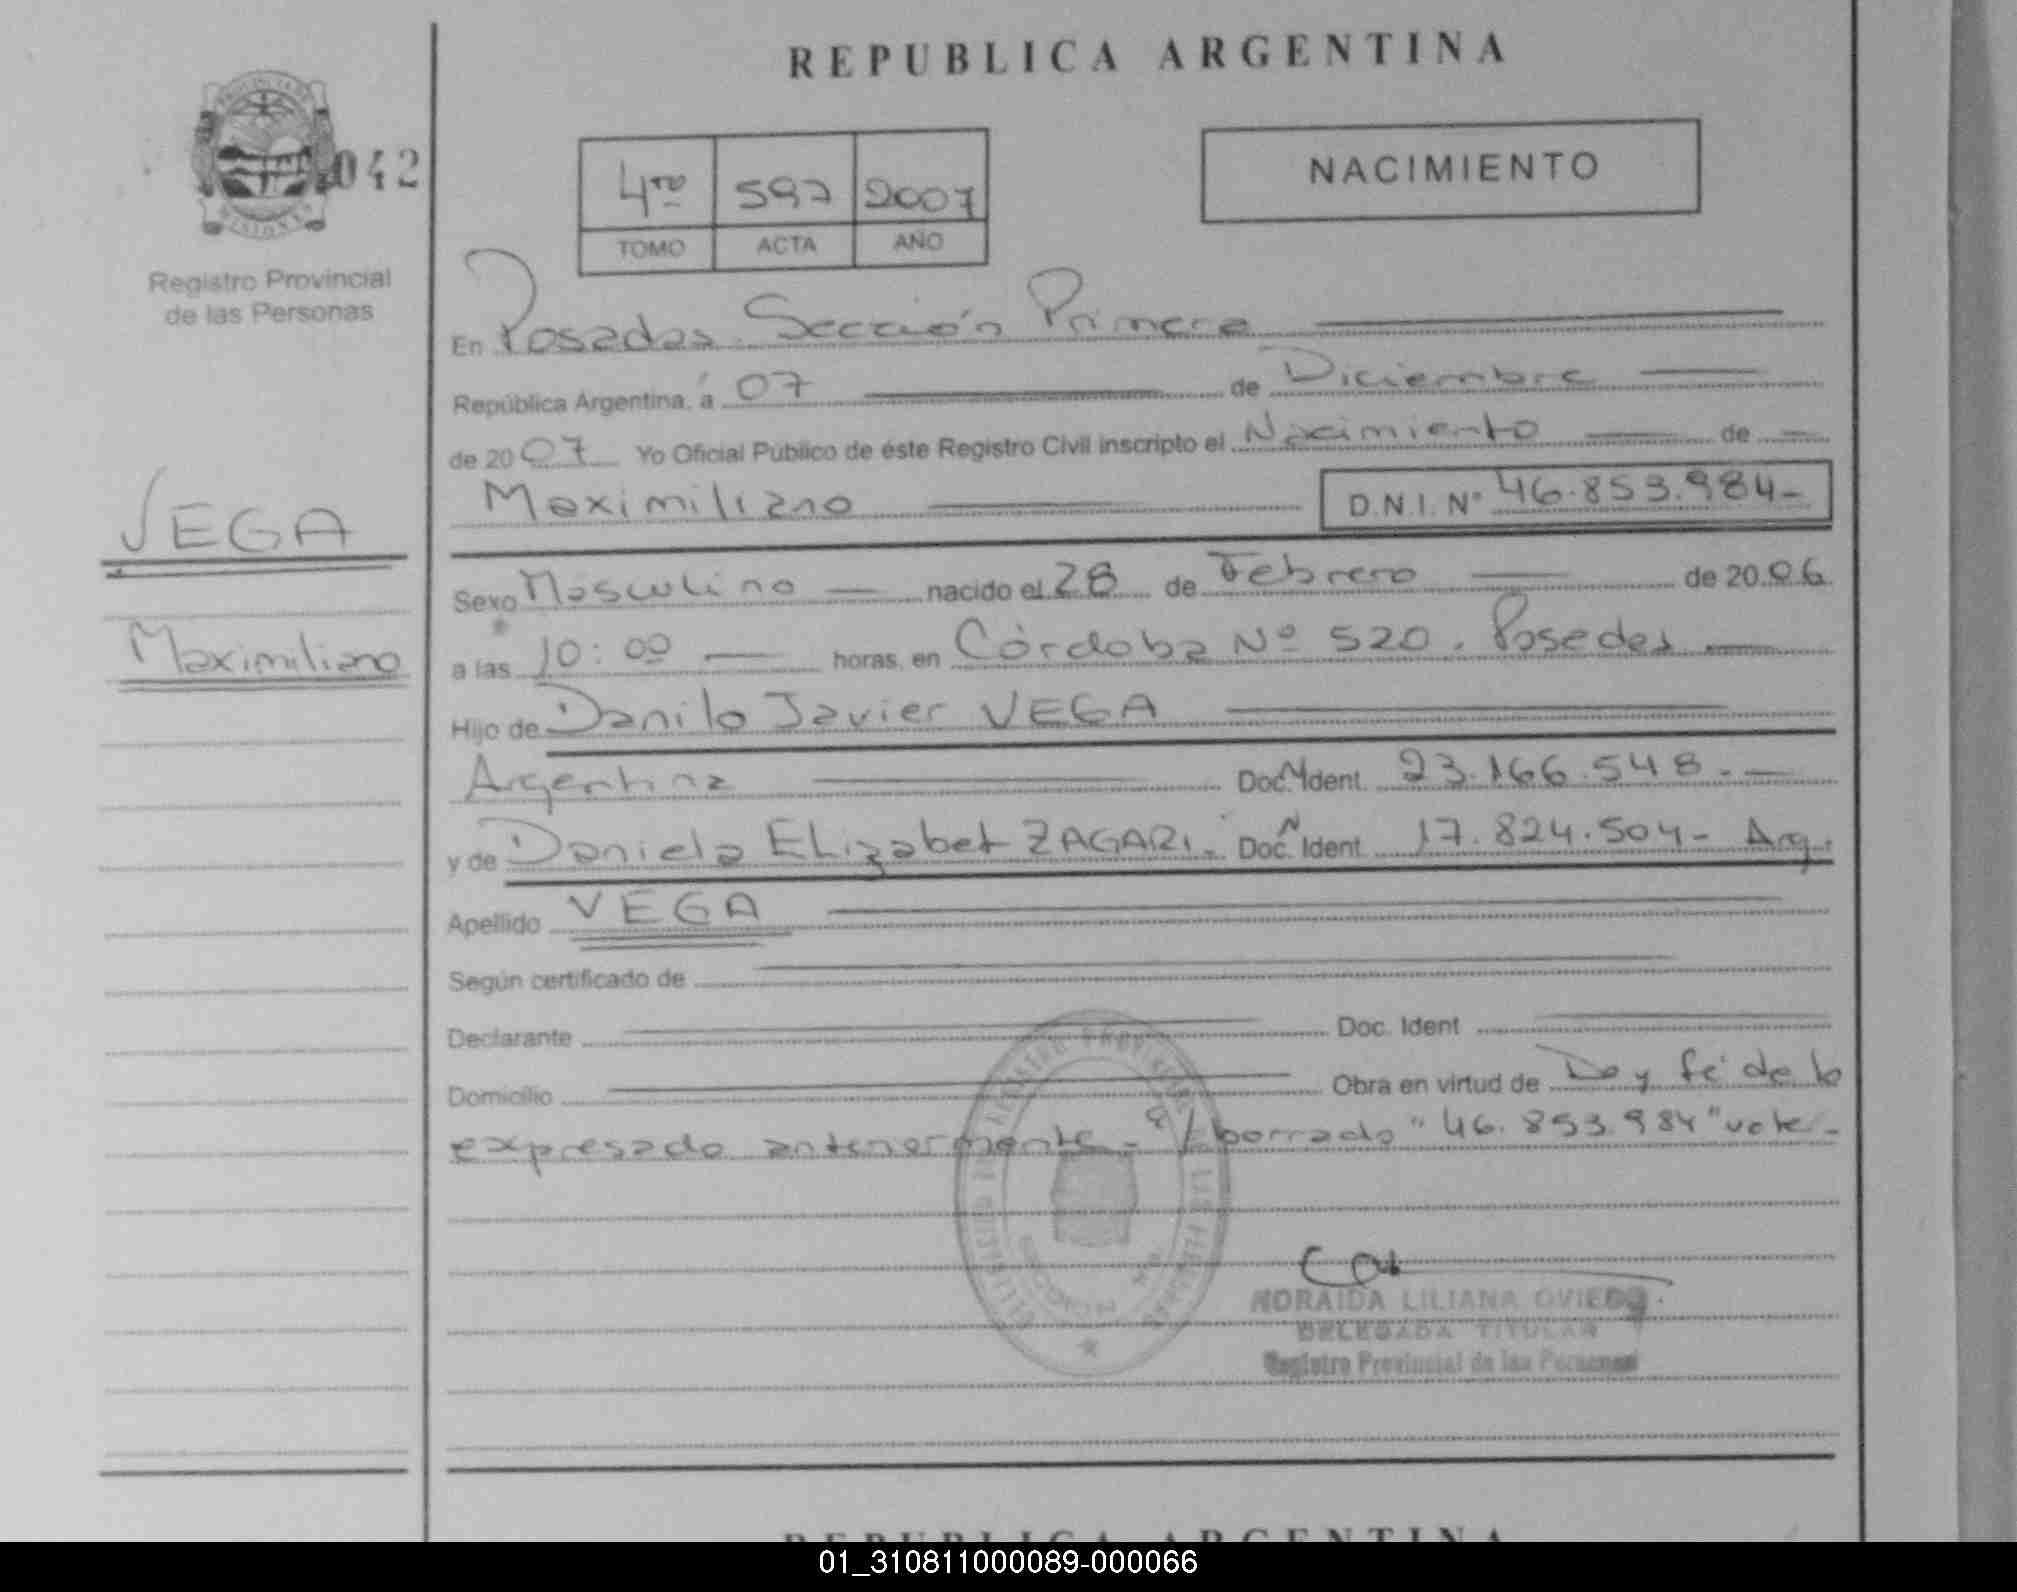 REPUBLICA ARGENTINA
PROVINCIA DE
MISIONES
042
Registro Provincial
de las Personas
4to 597 2007
TOMO ACTA AÑO
NACIMIENTO
En Posadas Sección Primera
República Argentina, a 07 de Diciembre
de 2007 Yo Oficial Público de éste Registro Civil inscripto el Nacimiento de
Maximiliano D.N.I. Nº 46.853.984-
VEGA
Maximiliano
Sexo Masculino nacido el 28 de Febrero de 2006
a las 10:00 horas, en Córdoba Nº 520. Posadas
Hijo de Danilo Javier VEGA
Argentina Doc. N Ident. 23.166.548.-
y de Daniela ELizabet ZAGARI. Doc. N Ident. 17.824.504- Arg.
Apellido VEGA
Según certificado de
Declarante Doc. Ident
Domicilio Obra en virtud de Doy fé de lo
expresado anteriormente - borrado "46.853.984" vale-
NORAIDA LILIANA OVIEDO
DELEGADA TITULAR
Registro Provincial de las Personas
REPUBLICA ARGENTINA
01_310811000089-000066